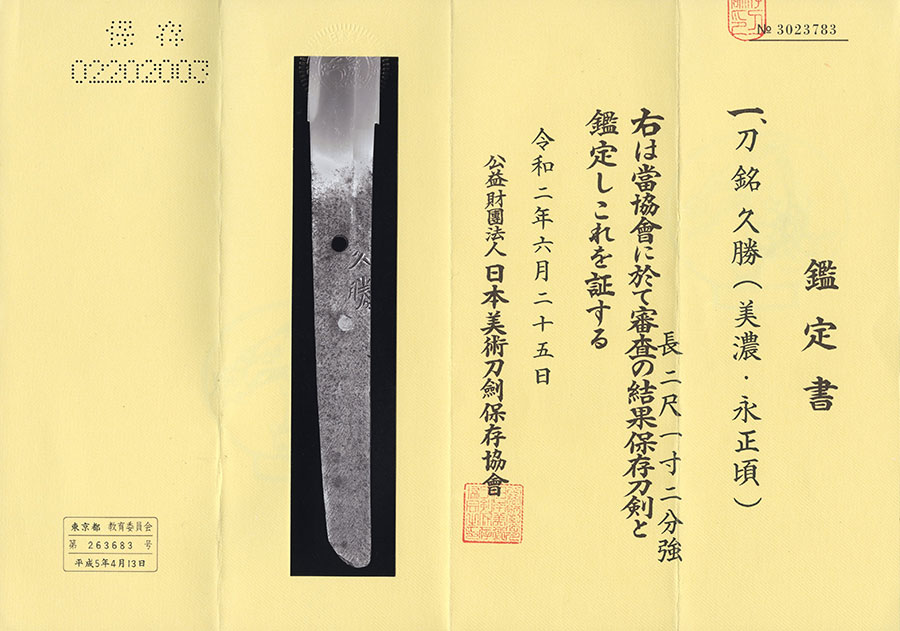 № 3023783
鑑定書
一、刀 銘 久勝(美濃・永正頃)
長 二尺一寸二分強
右は當協會に於て審査の結果保存刀剣と
鑑定しこれを証する
令和二年六月二十五日
公益財團法人 日本美術刀劍保存協會
久勝
保存
02202003
東京都 教育委員会
第 263683 号
平成5年4月13日